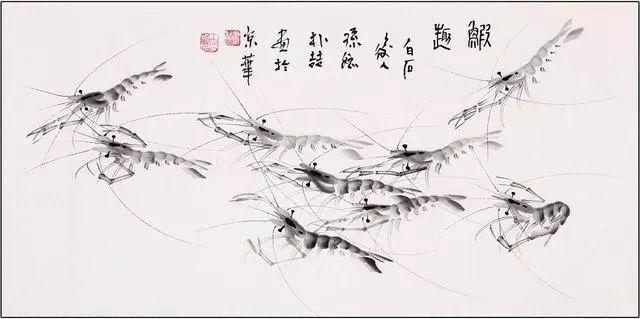 鰕
趣
白石
後人
孫媳
朴喆
畫於
京華